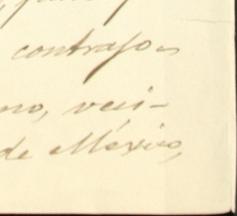 contrajo
no, veci-
de México,